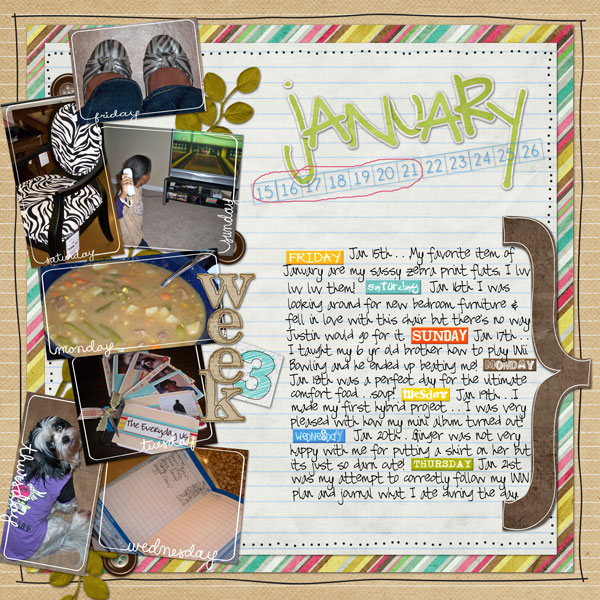 friday
saturday
sunday
monday
tuesday
The Everyday us
thursday
wednesday
week
3
january
15 16 17 18 19 20 21 22 23 24 25 26
FRIDAY Jan 15th... My favorite item of
January are my sassy zebra print flats. I luv
luv luv them! saturday Jan 16th I was
looking around for new bedroom furniture &
fell in love with this chair but there's no way
Justin would go for it. SUNDAY Jan 17th...
I taught my 6 yr old brother how to play Wii
Bowling and he ended up beating me! MONDAY
Jan 18th was a perfect day for the ultimate
comfort food...soup! tuesday Jan 19th...I
made my first hybrid project...I was very
pleased with how my mini album turned out!
WEDNESDAY Jan 20th...Ginger was not very
happy with me for putting a shirt on her but
its just so darn cute! THURSDAY Jan 21st
was my attempt to correctly follow my WW
plan and journal what I ate during the day